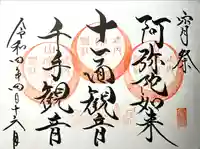 阿弥陀如来
十一面観音
千手観音
令和四年四月十六日